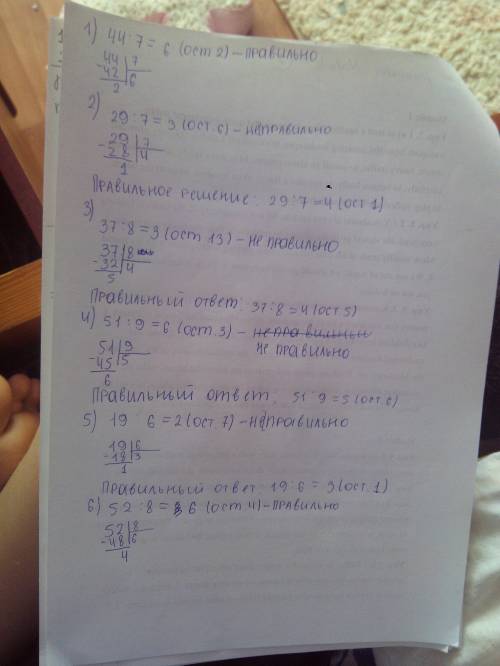 1) 44:7 = 6 (ост 2) – правильно
44 7
-42 6
2
2)
29:7 = 3 (ост. 6) – неправильно
29 7
-28 4
1
Правильное решение: 29:7 = 4 (ост 1)
3)
37:8 = 3 (ост 13) – не правильно
37 8
-32 4
5
Правильный ответ: 37:8 = 4 (ост 5)
4) 51:9 = 6 (ост. 3) – неправильный
не правильно
51 9
-45 5
6
Правильный ответ: 51:9 = 5 (ост. 6)
5) 19:6 = 2 (ост. 7) – неправильно
19 6
-18 3
1
Правильный ответ: 19:6 = 3 (ост. 1)
6) 52:8 = 6 (ост. 4) – правильно
52 8
-48 6
4